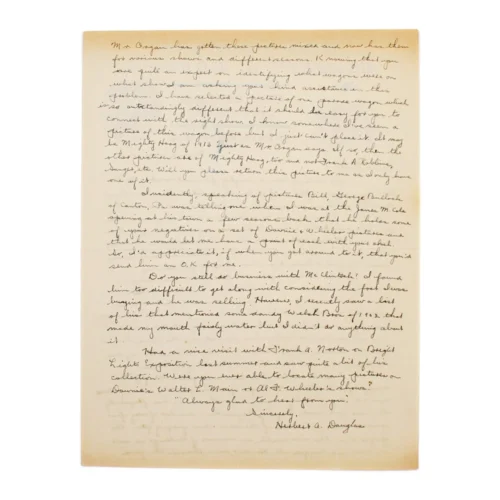 Mr. Bogan has gotten these pictures mixed and now has them
for various shows and different seasons. Knowing that you
are quite an expert on identifying what wagons were on
what shows I am asking your kind assistance on this
problem. I have selected a picture of one wagon which
is so outstandingly different that it should be easy for you to
connect with the right show. I know somewhere I've seen a
picture of this wagon before but I just can't place it. It may
be Mighty Haag of 1916 just as Mr. Bogan says. If so, then the
other pictures are of Mighty Haag, too and not Frank A. Robbins,
etc. Will you please return this picture to me as I only have
one of it.
Incidently, speaking of pictures Bill, George Bullock
of Canton, was telling me when I was at the James M. Cole
opening at his town a few seasons back that he has some
of your negatives on a set of Downie & Wheeler pictures and
that he would let me have a print of each with your
So, I'd appreciate it, if when you get around to it, that you'd
send him an O.K. for me.
Do you still do business with I found
him too difficult to get along with considering the fact I was
buying and he was selling. However, I recently saw a list
of his that mentioned some dandy Welsh Bros. of 1902 that
made my mouth fairly water but I didn't do anything about
it.
Had a nice visit with Frank A. Norton on Bright
Lights Exposition last summer and saw quite a lot of his
collection. Were you ever able to locate many pictures on
Downie's Walter L. Main or Al F. Wheeler's shows?
"Always glad to hear from you".
Sincerely,
Herbert A. Douglas